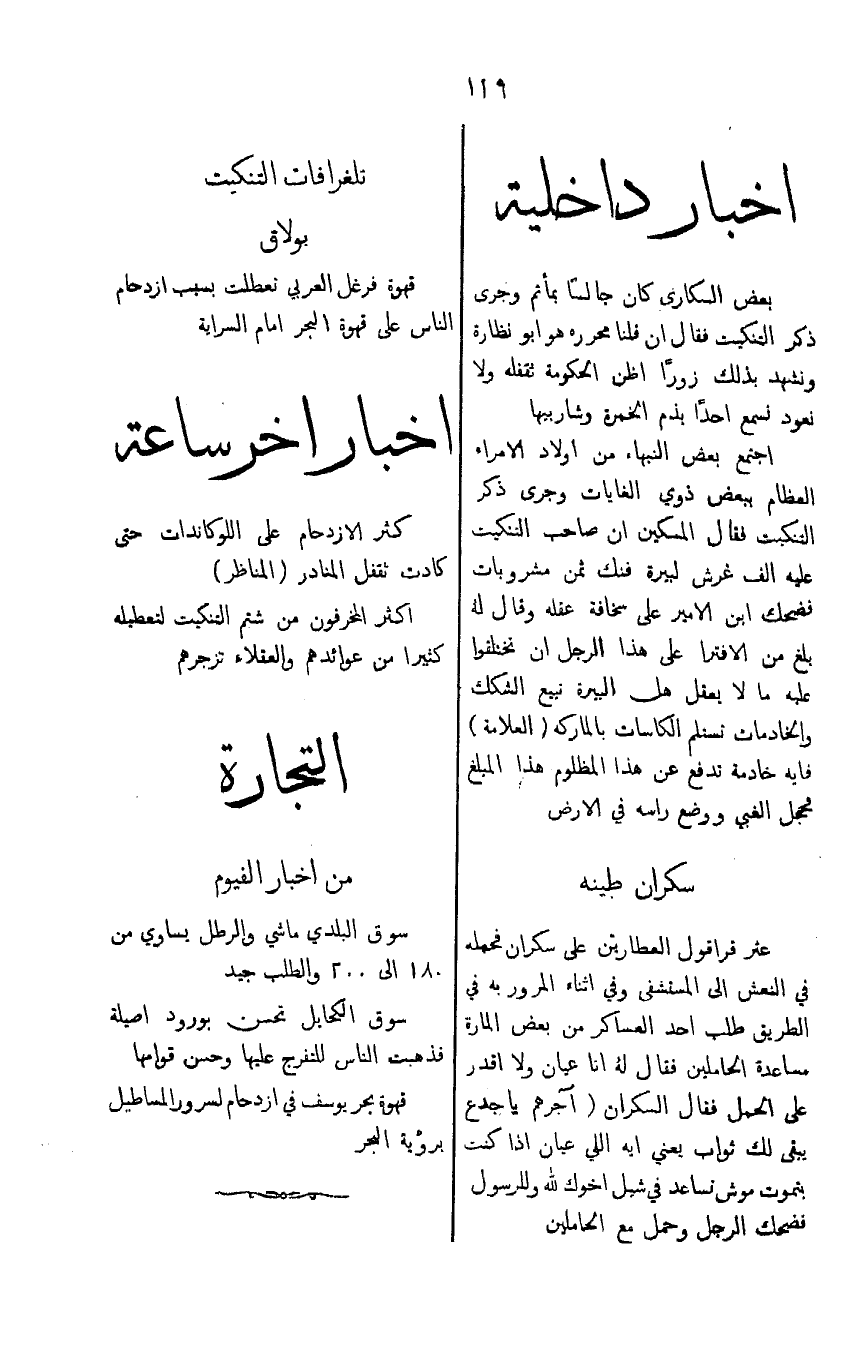 ١٢٩
اخبار داخلية
بعض السكارى كان جالسًا بمأتم وجرى
ذكر التنكيت فقال ان قلنا محرره هو ابو نظارة
ونشهد بذلك زورًا اظن الحكومة تقفله ولا
نعود نسمع احدًا يذم الخمرة وشاربيها
اجتمع بعض النبهاء من اولاد الامراء
العظام ببعض ذوي الغايات وجرى ذكر
التنكيت فقال المسكين ان صاحب التنكيت
عليه الف غرش لبيرة فنك ثمن مشروبات
فضحك ابن الامير على سخافة عقله وقال لهُ
بلغ من الافترا على هذا الرجل ان تختلقوا
عليه ما لا يعقل هل البيرة تبيع الشكك
والخادمات تستلم الكاسات بالماركه (العلامة)
فايه خادمة تدفع عن هذا المظلوم هذا المبلغ
فخجل الغبي ووضع راسه في الارض
سكران طينه
عثر قراقول العطارين على سكران فحمله
في النعش الى المستشفى وفي اثناء المرور به في
الطريق طلب احد العساكر من بعض المارة
مساعدة الحاملين فقال لهُ انا عيان ولا اقدر
على الحمل فقال السكران (آجرهم ياجدع
يبقى لك ثواب يعني ايه اللي عيان اذا كنت
بتموت موش تساعد في شيل اخوك لله وللرسول
فضحك الرجل وحمل مع الحاملين
تلغرافات التنكيت
بولاق
قهوة فرغل العربي تعطلت بسبب ازدحام
الناس على قهوة البحر امام السراية
اخبار اخر ساعة
كثر الازدحام على اللوكاندات حتى
كادت تقفل المنادر (المناظر)
اكثر المخرفون من شتم التنكيت لتعطيله
كثيرا من عوائدهم والعقلاء تزجرهم
التجارة
من اخبار الفيوم
سوق البلدي ماشي والرطل يساوي من
١٨٠ الى ٢٠٠ والطلب جيد
سوق الكحايل تحسن بورود اصيلة
فذهبت الناس للتفرج عليها وحسن قوامها
قهوة بحر يوسف في ازدحام لسرور المساطيل
برؤية البحر